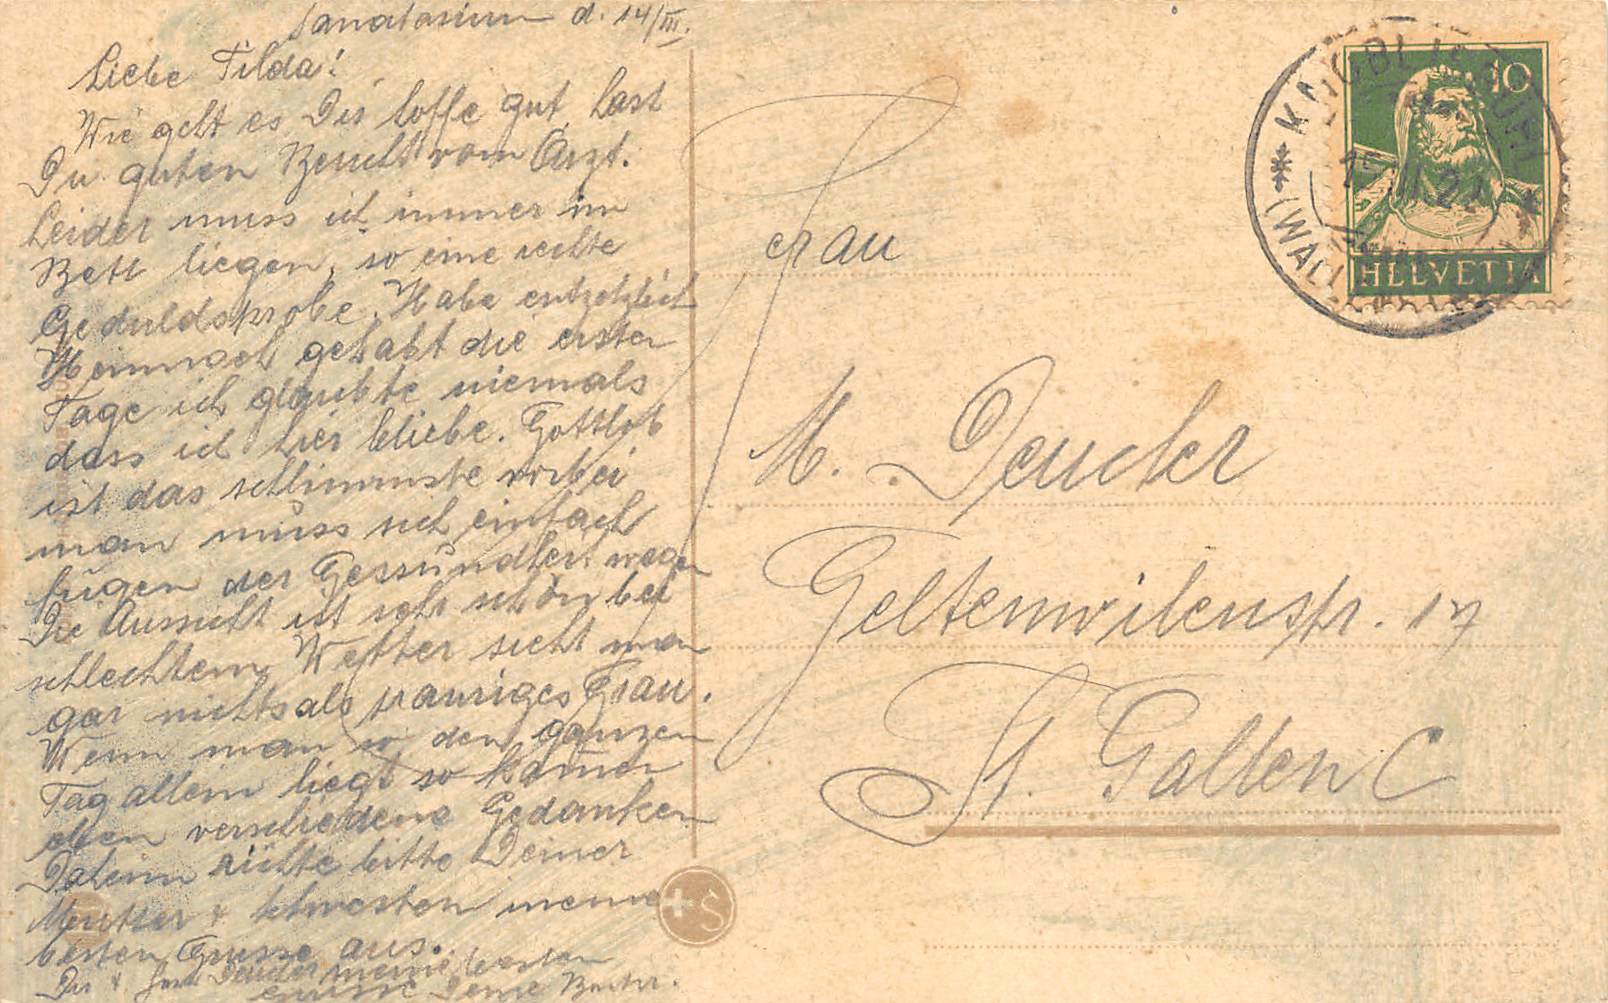 Sanatorium d. 14/III.
Liebe Tilda!
Wie geht es Dir hoffe gut, hast
Du guten Bericht vom Arzt.
Leider muss ich immer im
Bett liegen, so eine rechte
Geduldsprobe. Habe entsetzlich
Heimweh gehabt die ersten
Tage ich glaubte niemals
dass ich hier bliebe. Gottlob
ist das schlimmste vorbei
man muss sich einfach
fügen der Gesundheit wegen
Die Aussicht ist sehr schön bei
schlechtem Wetter sieht man
gar nichts als trauriges Grau.
Wenn man so den ganzen
Tag allein liegt so kommen
eben verschiedene Gedanken
Daheim richte bitte Deiner
Mutter & Schwestern meine
besten Grüsse aus.
Dir & Deucher meine besten
Grüsse Deine
Frau
M. Deucher
Geltenwilenstr. 17
St. Gallen C
10
HELVETIA
(WALL
+S